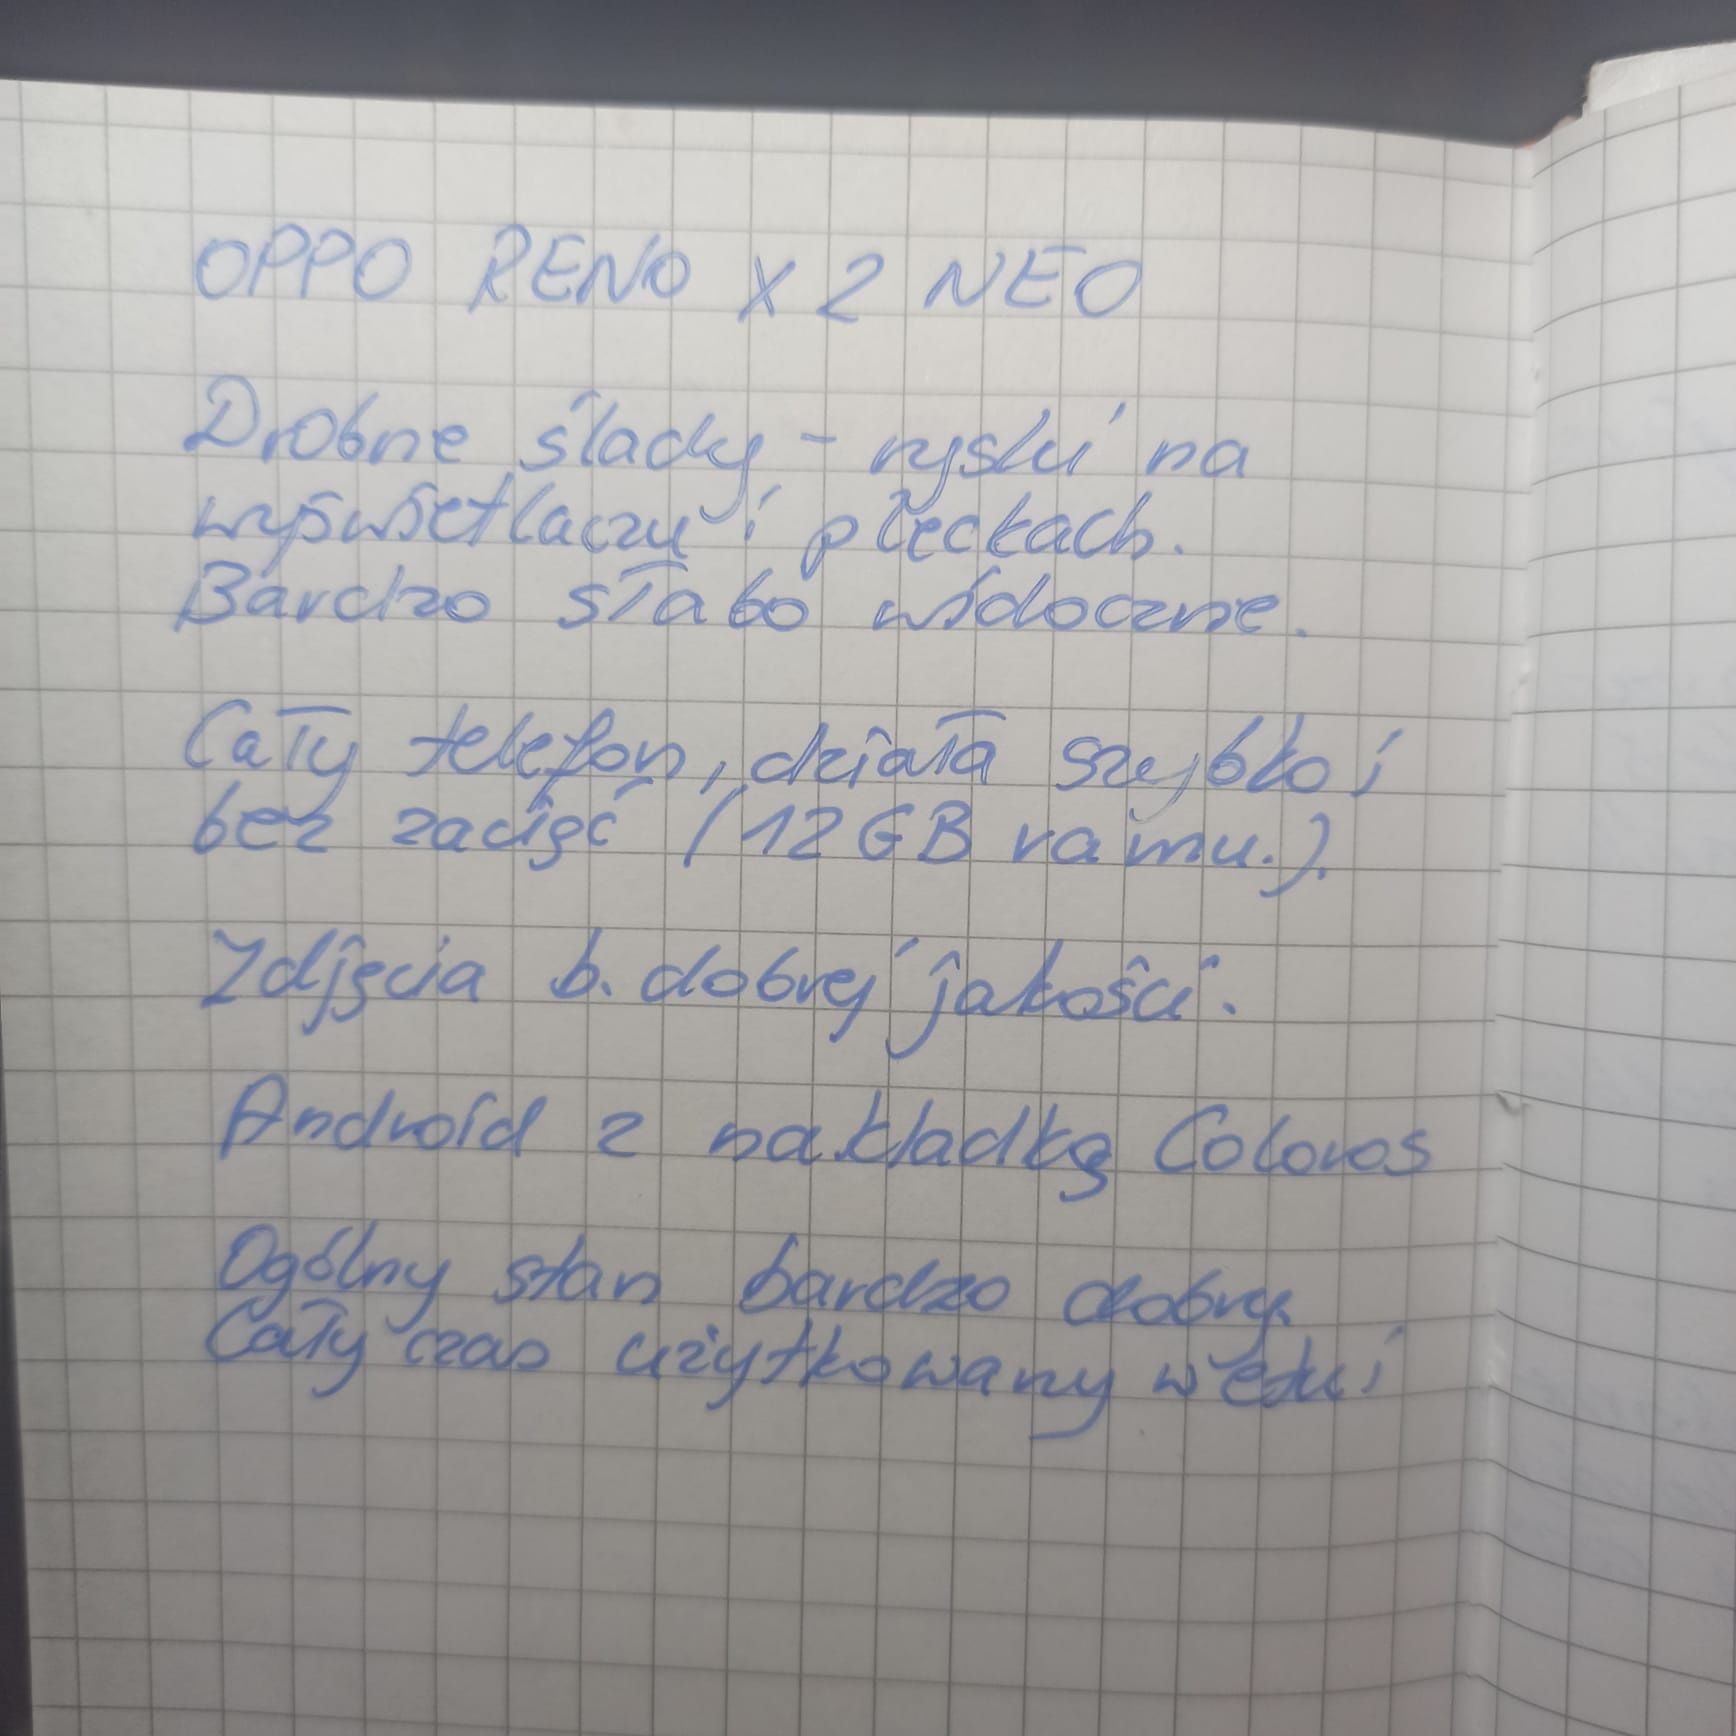 OPPO RENO X 2 NEO
Drobne ślady - ryski na
wyświetlaczu i pleckach.
Bardzo słabo widoczne.
Cały telefon, działa szybko i
bez zacięć (12GB ramu.).
Zdjęcia b. dobrej jakości.
Android z nakładką Coloros
Ogólny stan bardzo dobry.
Cały czas użytkowany w etui